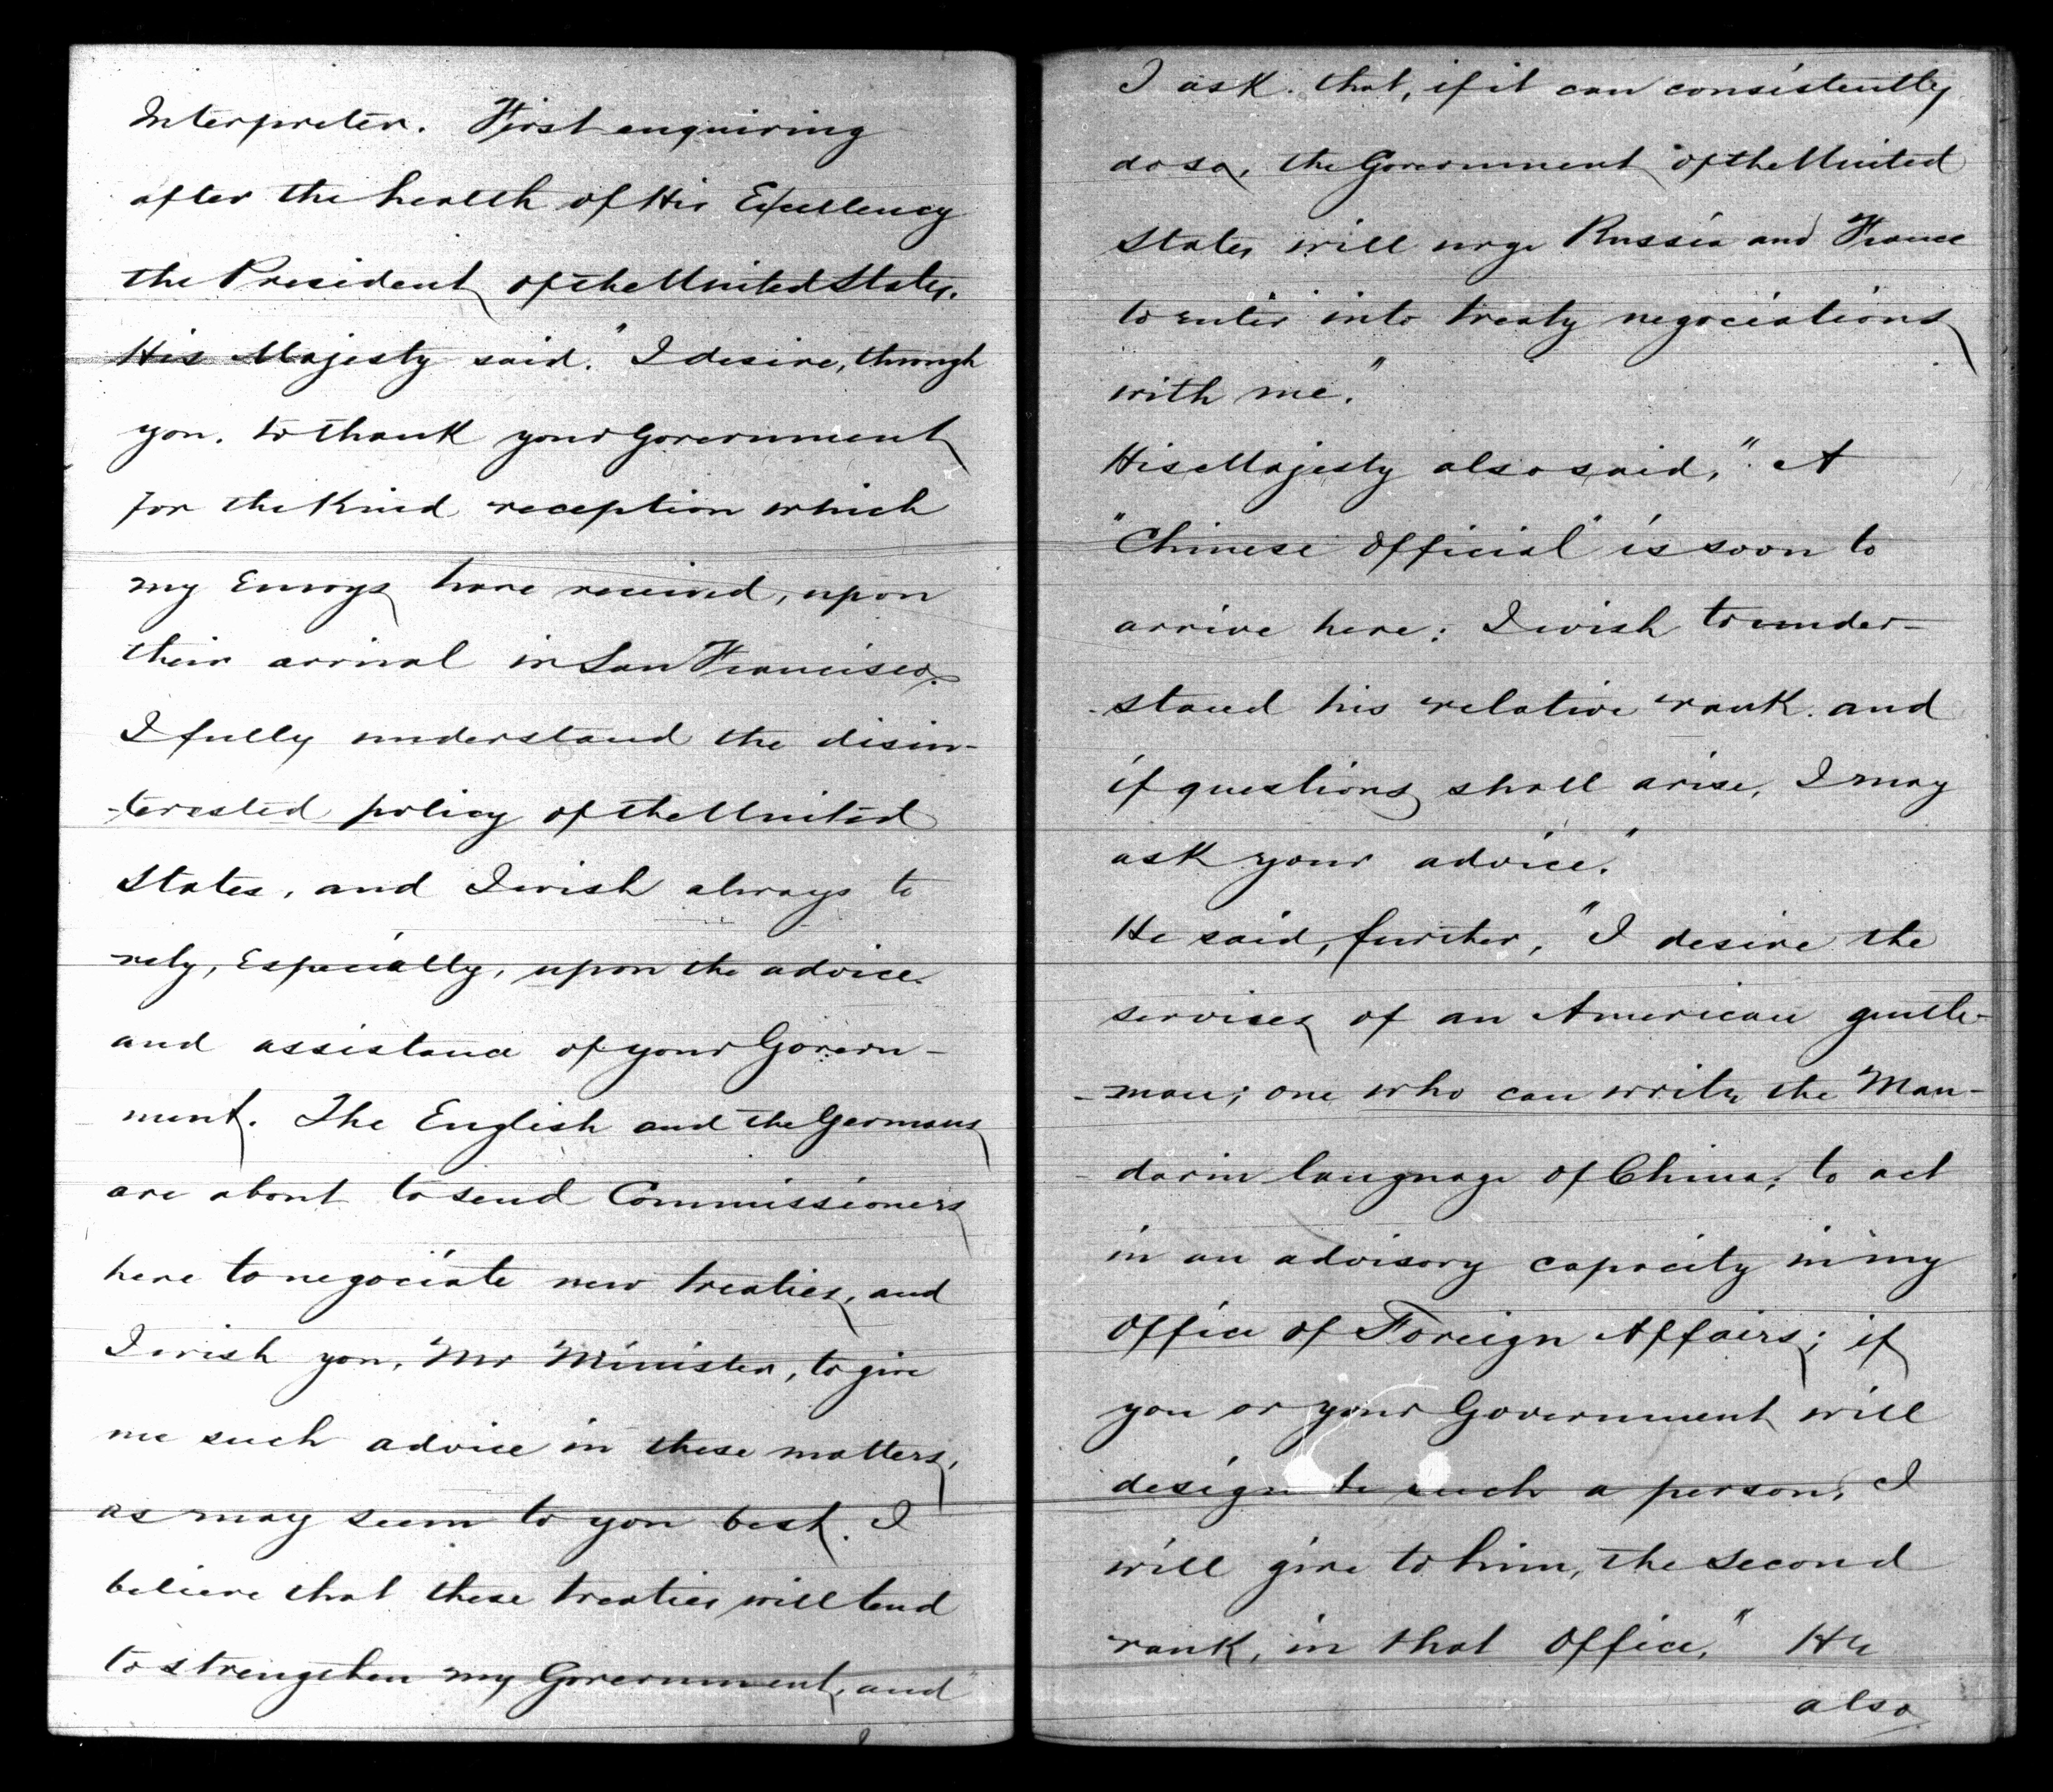 Interpreter. First enquiring
after the health of His Excellency
the President of the United States.
His Majesty said. "I desire, through
you. to thank your Government
for the Kind reception which
my Envoys have received, upon
their arrival in San Francisco.
I fully understand the disin-
-terested policy of the United
States, and I wish always to
rely, Especially, upon the advice
and assistance of your Govern-
ment. The English and the Germans
are about to send Commissioners
here to negociate new treaties, and
I wish you, Mr Minister, to give
me such advice in these matters,
as may seem to you best. I
believe that these treaties will tend
to strengthen my Government, and
I ask. that, if it can consistently
do so, the Government of the United
States will urge Russia and France
to enter into treaty negociations
with me."
His Majesty also said, ". A
"Chinese Official" is soon to
arrive here: I wish to under-
-stand his relative rank. and
if questions shall arise, I may
ask your advice."
He said, further, "I desire the
servises of an American gentle-
-man; one who can write the Man-
-darin language of China; to act
in an advisory capacity in my
Office of Foreign Affairs; if
you or your Government will
design te such a person, I
will give to him, the second
rank, in that Office." He
also